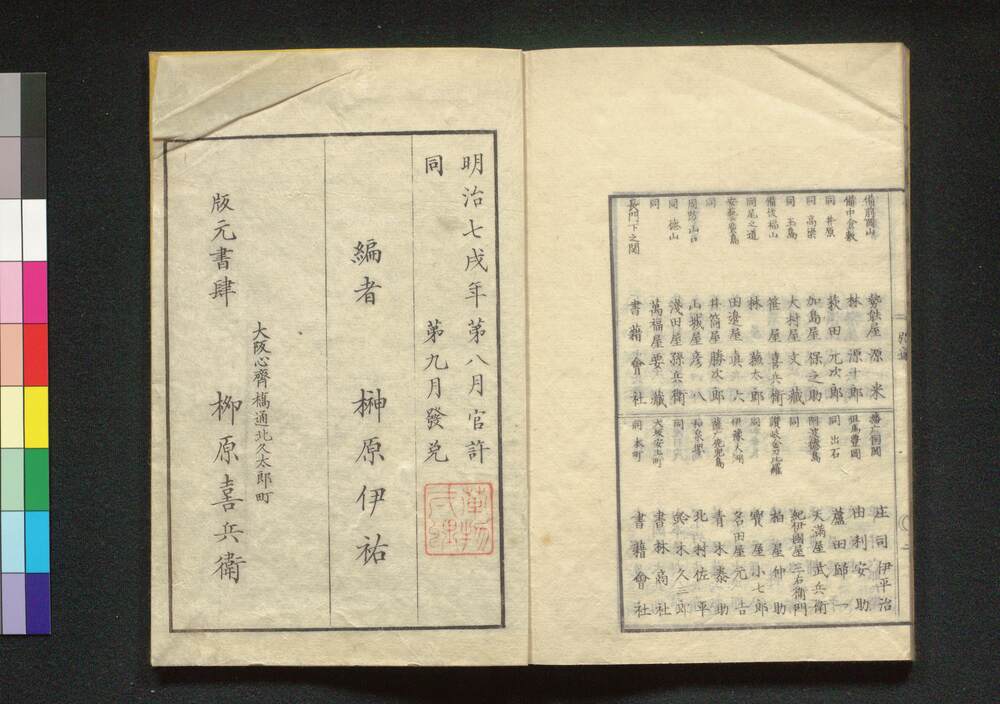 備前岡山 勢能屋源米
備中倉敷 林源十郎
同井原 萩田元次郎
同高梁 加島屋保之助
同玉島 大村屋文藏
備後福山 笹屋喜兵衛
同尾之道 林藤太郎
安藝廣島 田邊屋真六
同 井筒屋勝次郎
周防山口 山城屋彦八
同徳山 淺田屋孫兵衛
同 萬福屋要藏
長門下之関 書藉會社
庄司伊平治
但馬豊岡 由利安助
同出石 蘆田歸一
阿波徳島 天満屋武兵衛
同 紀伊國屋三右衛門
讃岐金刀比羅 柏屋仲助
同 寳屋小七郎
伊豫大洲 名田屋元吉
薩广鹿児島 青木泰助
和泉堺 北村佐平
同 鈴木久三郎
大坂安土町 書林商社
同本町 書藉會社
明治七戌年第八月官許
同 第九月發兌
編者 榊原伊祐
大阪心齊橋通北久太郎町
版元書肆 柳原喜兵衛